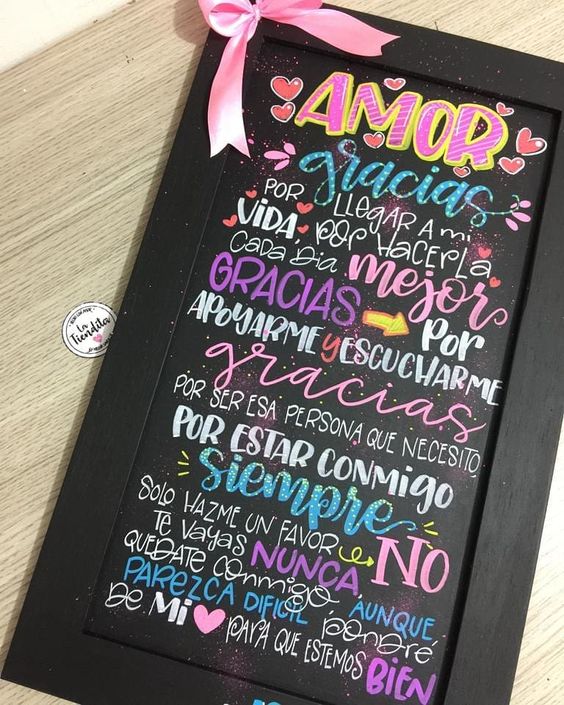 AMOR
gracias
POR LLEGAR A mi
ViDA, POR HACERLA
CADA DiA mejor
GRACIAS POR
APOYARME y ESCUCHARME
gracias
POR SER ESA PERSONA QUE NECESITO
POR ESTAR CONMiGO
siempre
SOLO HAZME UN FAVOR NO
TE VAYAS NUNCA,
QUEDATE CONMIGO, AUNQUE
PAREZCA DIFICIL, PONDRÉ
DE Mi PARA QUE ESTEMOS BIEN
La
Tiendita